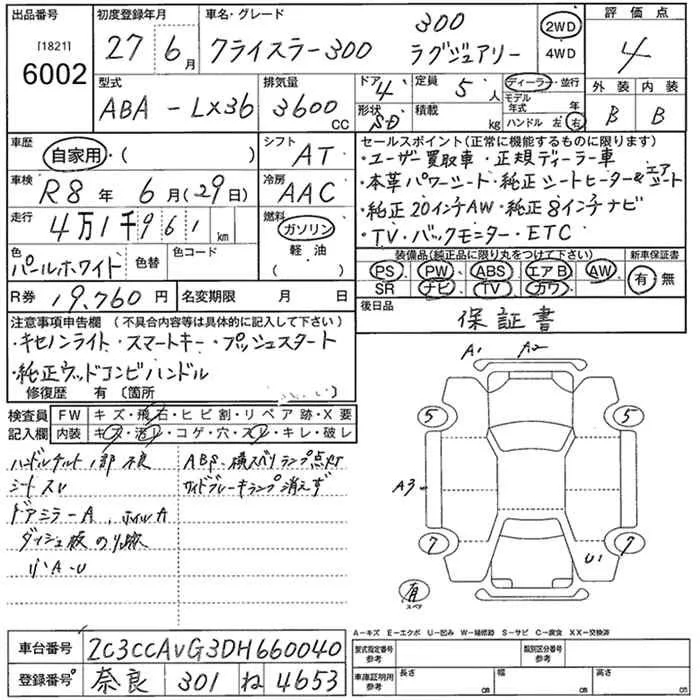 出品番号
[1821]
6002
初度登録年月
27 6月
車名・グレード
クライスラー300
300
ラグジュアリー
2WD
4WD
評価点
4
型式
ABA - LX36
排気量
3600 CC
ドア 4
形状 SD
定員 5人
積載 kg
ディーラー・並行
モデル年式 年
ハンドル 左 右
外装 内装
B B
車歴
自家用・( )
シフト
AT
車検
R8年 6月(29日)
冷房
AAC
走行
4万1千961 km
燃料
ガソリン
軽・油
( )
色
パールホワイト
色替
色コード
R券 19,760円
名変期限 月 日
セールスポイント(正常に機能するものに限ります)
・ユーザー買取車・正規ディーラー車
・本革パワーシート・純正シートヒーター&エアシート
・純正20インチAW・純正8インチナビ
・TV・バックモニター・ETC
装備品(純正品に限り丸をつけて下さい)
PS、PW、ABS、エアB、AW、
SR ナビ、TV、カワ
新車保証書
有・無
後日品
保証書
注意事項申告欄 (不具合内容等は具体的に記入して下さい)
・キセノンライト・スマートキー・プッシュスタート
・純正ウッドコンビハンドル
修復歴 有 〔箇所
検査員
記入欄
FW キズ・飛石・ヒビ割・リペア跡・X要
内装 キズ・汚レ・コゲ・穴・スレ・キレ・破レ
ハンドルチルト1部不良
シートスレ
ドアミラーA、ホイルA
ダッシュ板のり跡
小A・U
ABS、横スベリランプ点灯
サイドブレーキランプ消えず
A1 A2
5 5
A3
7 7
U1
有
スペア
A-キズ E-エクボ U-凹み W-補修跡 S-サビ C-腐食 XX-交換済
車台番号 2C3CCAVG3DH660040
登録番号 奈良 301 ね 4653
型式指定番号
参考
類別区分番号
参考
車庫証明用
参考
長さ cm
幅 cm
高さ cm